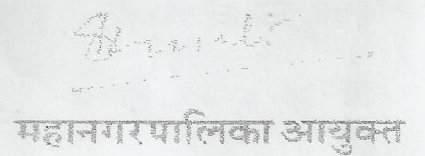 महानगरपालिका आयुक्त